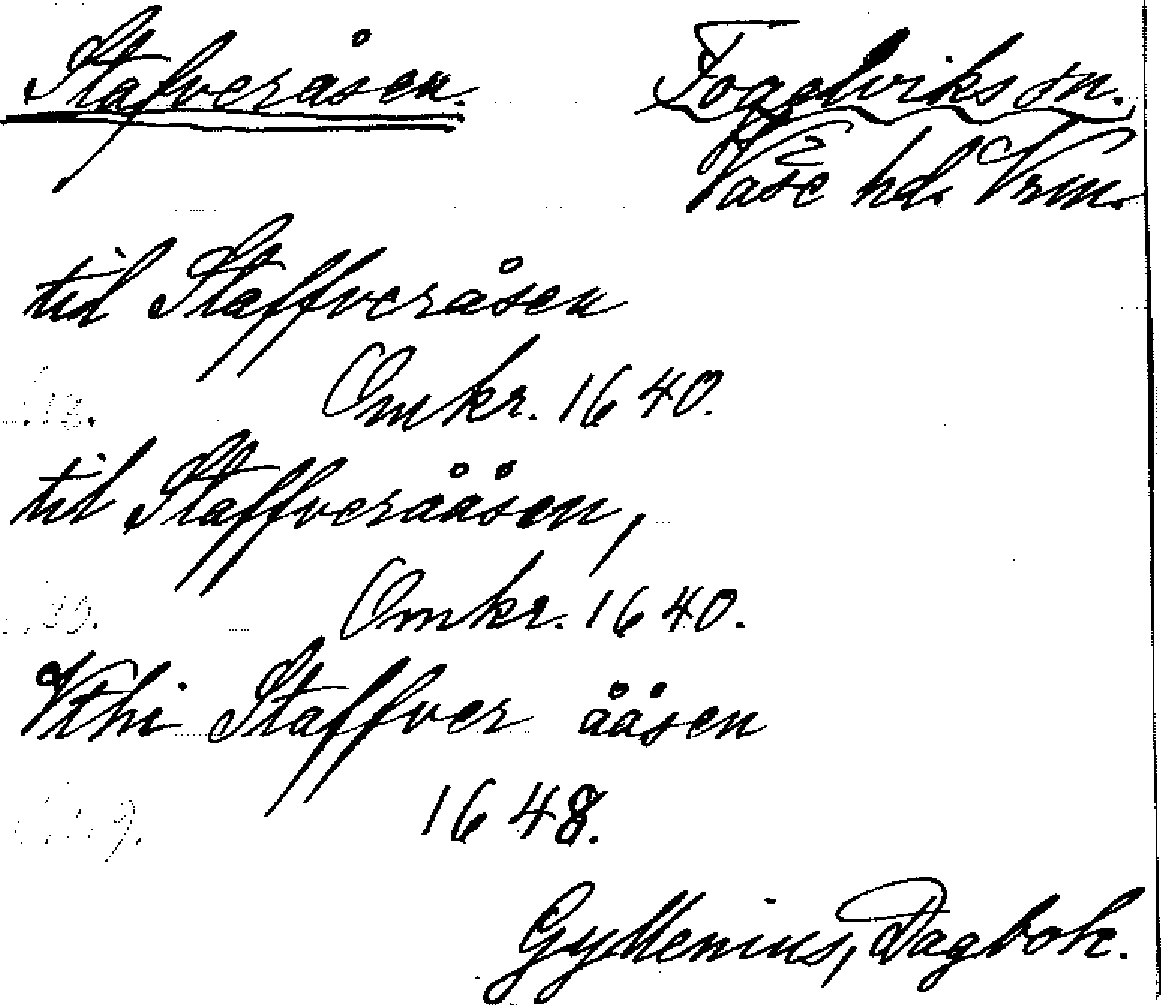 Stafveråsen. Fogelviks sn.
Väse hd. Vrm.
til Staffveråsen
Omkr. 1640.
til Staffverååsen,
Omkr. 1640.
Vthi Staffver ååsen
1648.
Gyllenius, Dagbok.